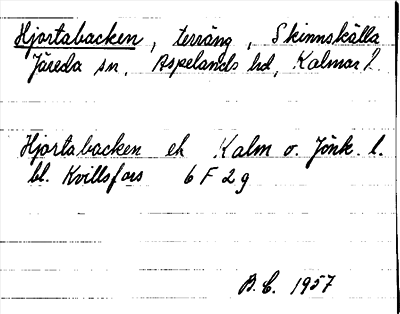 Hjortabacken, terräng, Skinnskälla
Järeda sn, Aspelands hd, Kalmar l.
Hjortabacken ek Kalm o. Jönk. l.
bl. Kvillsfors 6 F 2 g
B. E. 1957